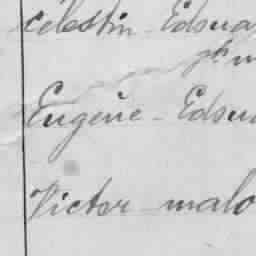 Celestin Edoua
Eugène - Edoua
Victor malo